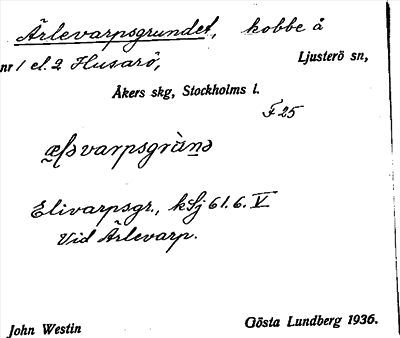 Ärlevarpsgrundet, kobbe å
nr 1 el. 2 Husarö, Ljusterö sn,
Åkers skg, Stockholms l.
F 25
Elivarpsgr., kSj 61.6. V
Vid Ärlevarp.
John Westin Gösta Lundberg 1936.